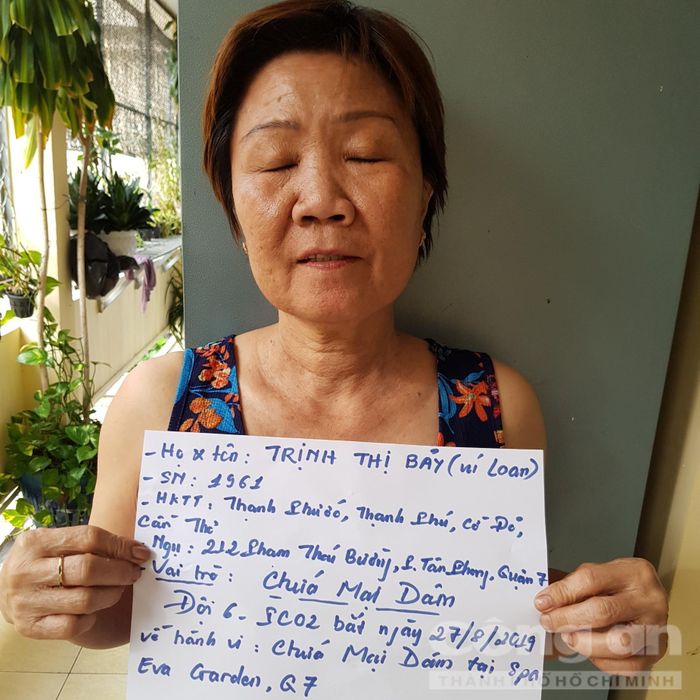 - Họ & tên: TRỊNH THỊ BẢY (Mí Loan)
- SN: 1961
- HKTT: Thạnh Phước, Thạnh Phú, Cờ Đỏ,
Cần Thơ
- Ngụ: 212 Phạm Thái Bường, P. Tân Phong, Quận 7
- Vai trò: Chứa Mại Dâm
Đội 6 - PC02 bắt ngày 27/8/2019
về hành vi: Chứa Mại Dâm tại Spa
Eva Garden, Q7
Công an
THÀNH PHỐ HỒ CHÍ MINH